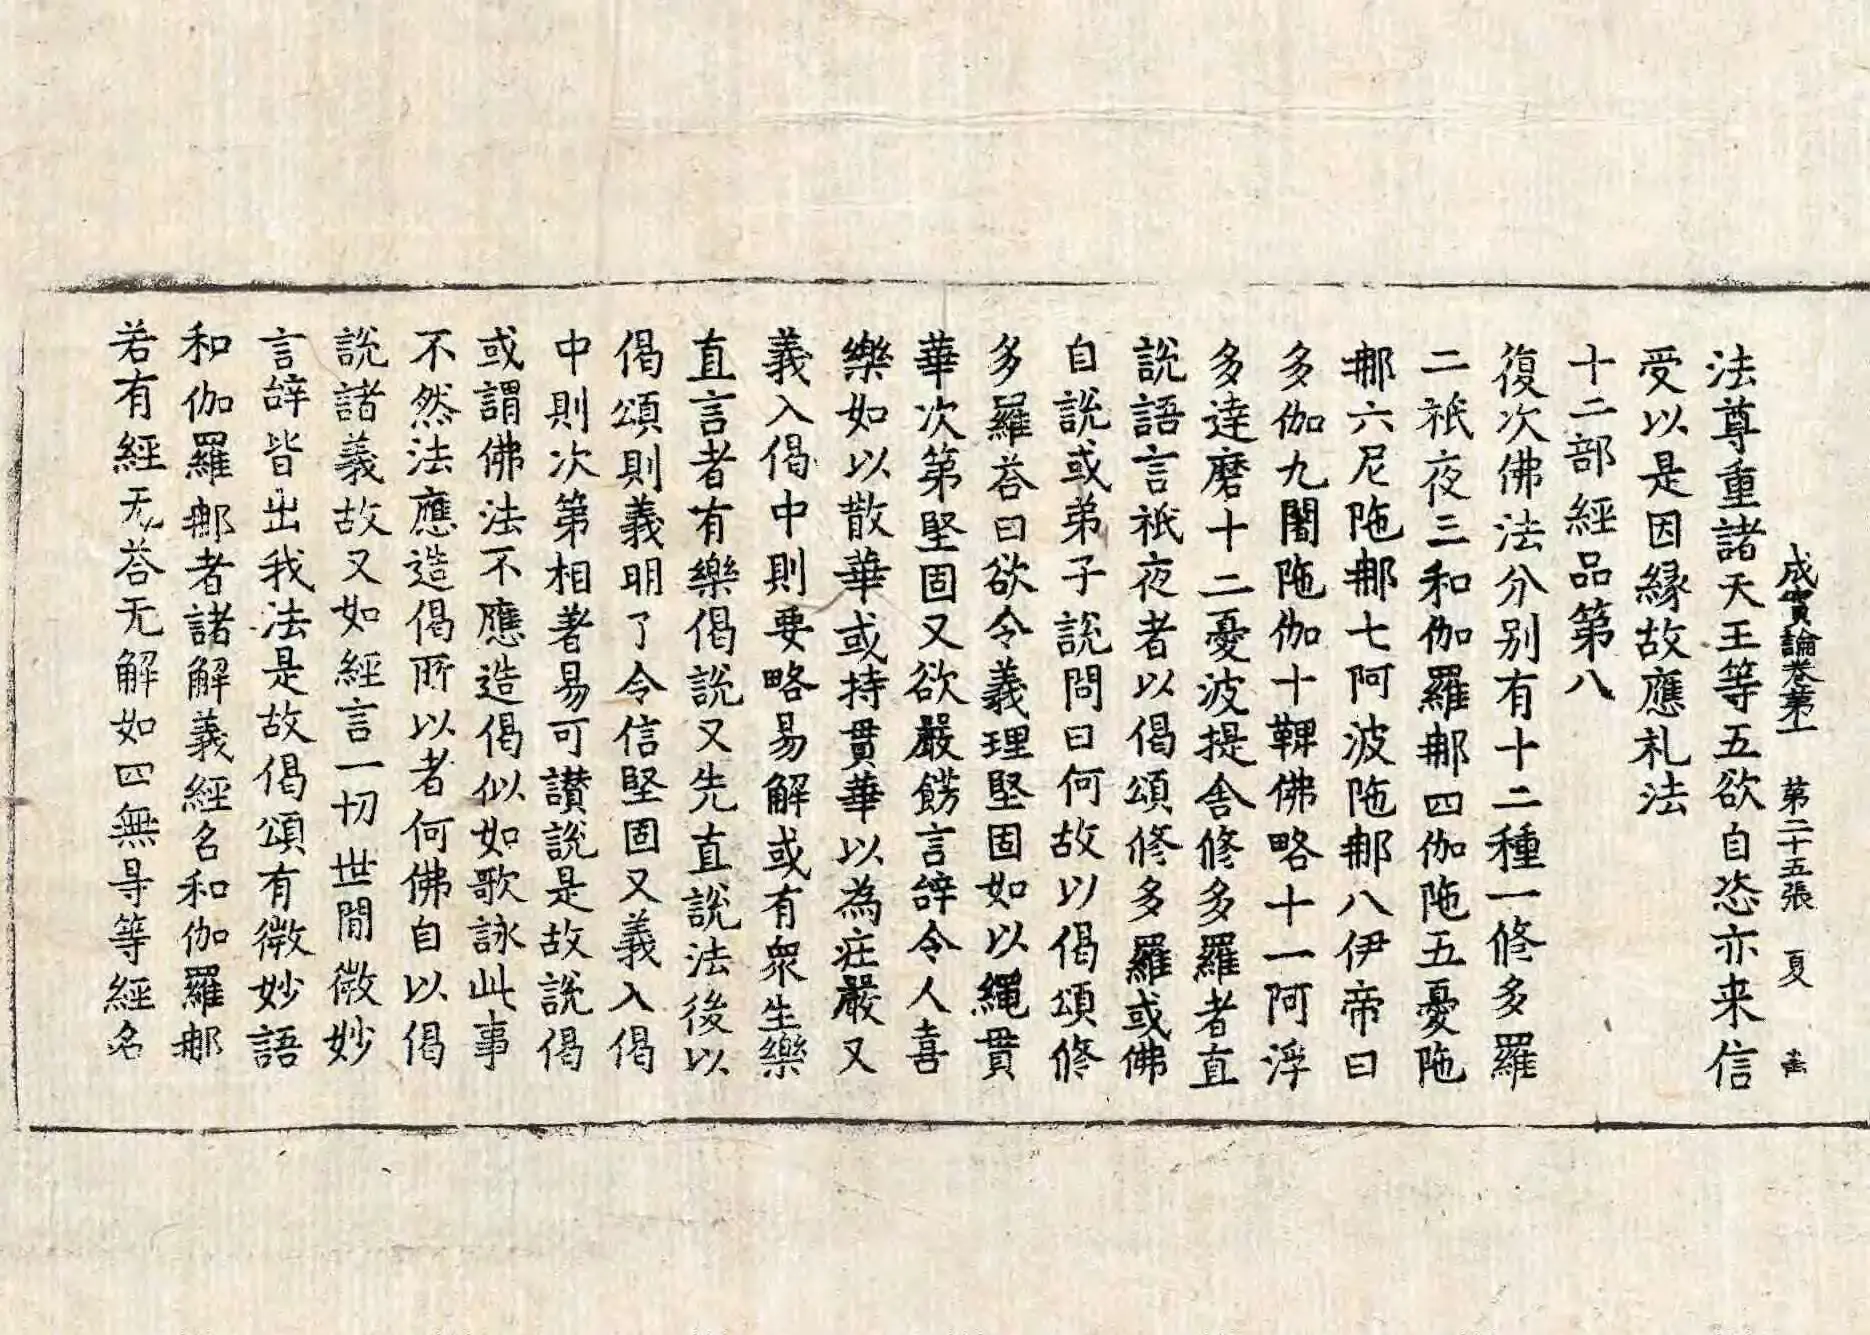 成實論卷第一 第二十五張 夏
法尊重諸天王等五欲自恣亦来信
受以是因縁故應礼法
十二部經品第八
復次佛法分別有十二種一修多羅
二祇夜三和伽羅那四伽陁五憂陁
那六尼陁那七阿波陁那八伊帝曰
多伽九闍陁伽十鞞佛略十一阿浮
多達磨十二憂波提舍修多羅者直
說語言祇夜者以偈頌修多羅或佛
自說或弟子說問曰何故以偈頌修
多羅荅曰欲令義理堅固如以繩貫
華次第堅固又欲嚴餝言辝令人喜
樂如以散華或持貫華以為庄嚴又
義入偈中則要略易解或有衆生樂
直言者有樂偈說又先直說法後以
偈頌則義明了令信堅固又義入偈
中則次第相著易可讃說是故說偈
或謂佛法不應造偈似如歌詠此事
不然法應造偈所以者何佛自以偈
說諸義故又如經言一切世閒微妙
言辝皆出我法是故偈頌有微妙語
和伽羅那者諸解義經名和伽羅那
若有經无荅无解如四無㝵等經名